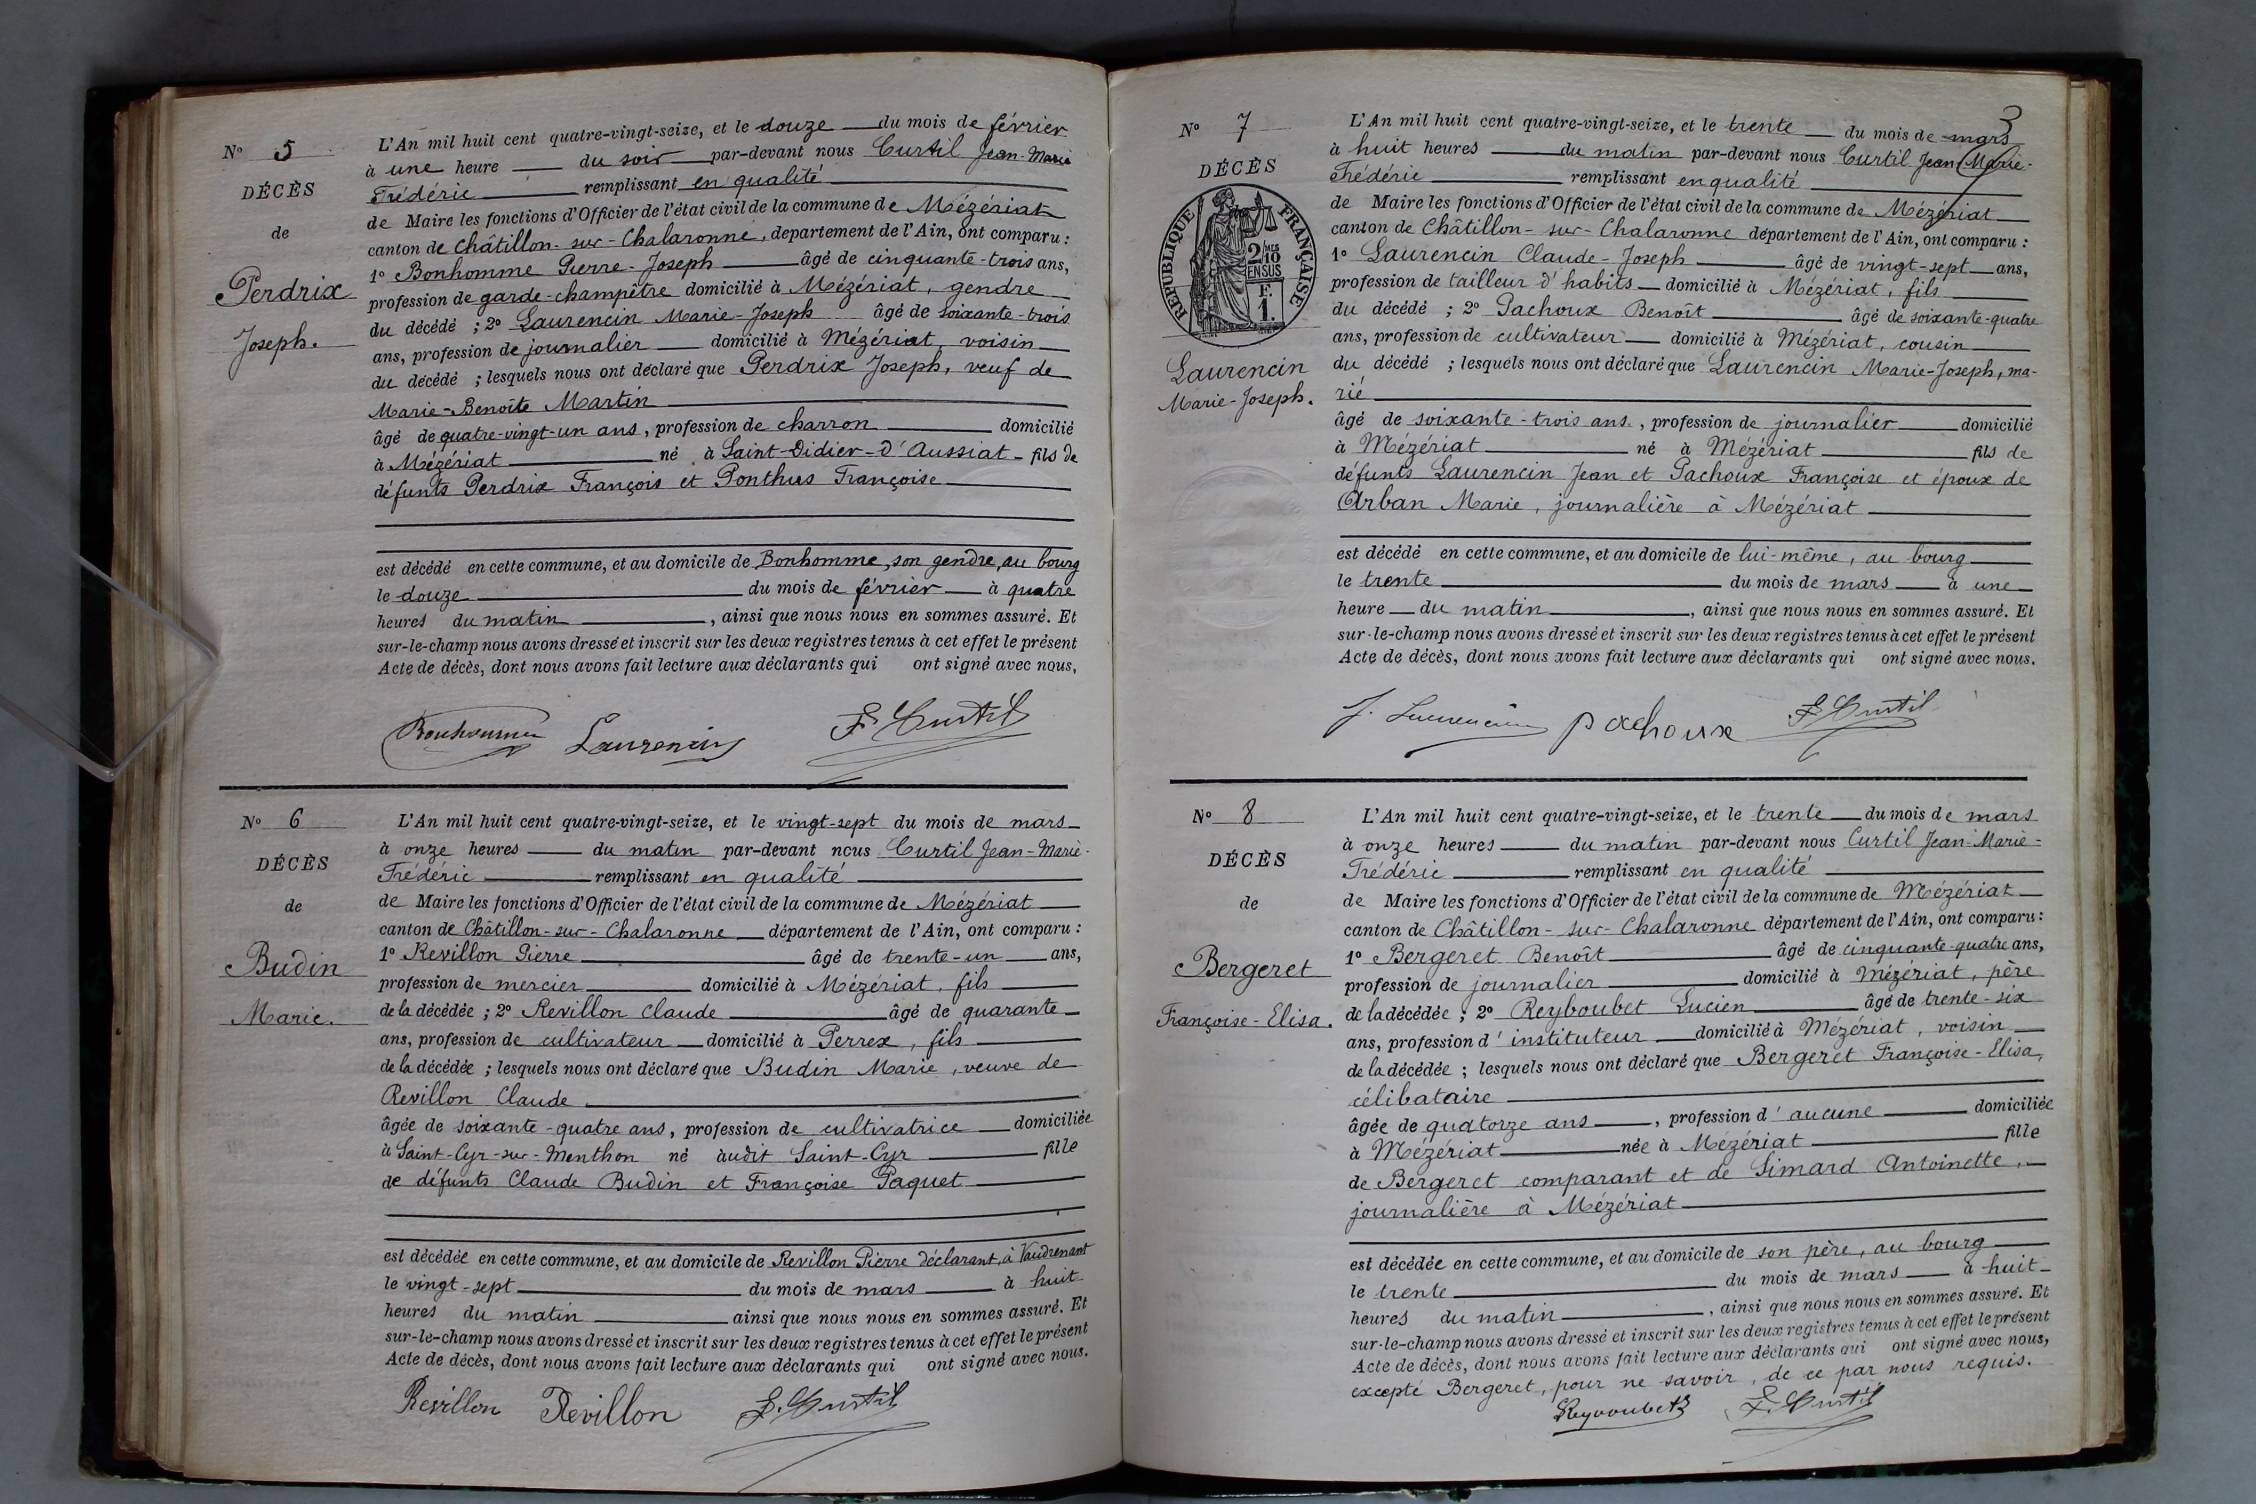 N° 5
DÉCÈS
de
Perdrix
Joseph.
L'An mil huit cent quatre-vingt-seize, et le douze du mois de février
à une heure du soir par-devant nous Curtil Jean-Marie
Frédéric remplissant en qualité
de Maire les fonctions d'Officier de l'état civil de la commune de Mézériat
canton de Châtillon-sur-Chalaronne, département de l'Ain, ont comparu :
1° Bonhomme Pierre-Joseph âgé de cinquante-trois ans,
profession de garde-champêtre domicilié à Mézériat, gendre
du décédé ; 2° Laurencin Marie-Joseph âgé de soixante-trois
ans, profession de journalier domicilié à Mézériat, voisin
du décédé ; lesquels nous ont déclaré que Perdrix Joseph, veuf de
Marie-Benoîte Martin
âgé de quatre-vingt-un ans, profession de charron domicilié
à Mézériat né à Saint-Didier-d'Aussiat - fils de
défunts Perdrix François et Ponthus Françoise
est décédé en cette commune, et au domicile de Bonhomme, son gendre, au bourg
le douze du mois de février à quatre
heures du matin, ainsi que nous nous en sommes assuré. Et
sur-le-champ nous avons dressé et inscrit sur les deux registres tenus à cet effet le présent
Acte de décès, dont nous avons fait lecture aux déclarants qui ont signé avec nous.
Bonhomme Laurencin F. Curtil
N° 6
DÉCÈS
de
Budin
Marie.
L'An mil huit cent quatre-vingt-seize, et le vingt-sept du mois de mars
à onze heures du matin par-devant nous Curtil Jean-Marie-
Frédéric remplissant en qualité
de Maire les fonctions d'Officier de l'état civil de la commune de Mézériat
canton de Châtillon-sur-Chalaronne département de l'Ain, ont comparu :
1° Revillon Pierre âgé de trente-un ans,
profession de mercier domicilié à Mézériat, fils
de la décédée ; 2° Revillon Claude âgé de quarante
ans, profession de cultivateur domicilié à Perrex, fils
de la décédée ; lesquels nous ont déclaré que Budin Marie, veuve de
Revillon Claude
âgée de soixante-quatre ans, profession de cultivatrice domiciliée
à Saint-Cyr-sur-Menthon né audit Saint-Cyr fille
de défunts Claude Budin et Françoise Paquet
est décédée en cette commune, et au domicile de Revillon Pierre déclarant, à Vaudrenant
le vingt-sept du mois de mars à huit
heures du matin ainsi que nous nous en sommes assuré. Et
sur-le-champ nous avons dressé et inscrit sur les deux registres tenus à cet effet le présent
Acte de décès, dont nous avons fait lecture aux déclarants qui ont signé avec nous.
Revillon Revillon F. Curtil
3
N° 7
DÉCÈS
RÉPUBLIQUE FRANÇAISE
2/10 MES
EN SUS
F.
1.
Laurencin
Marie-Joseph.
L'An mil huit cent quatre-vingt-seize, et le trente du mois de mars
à huit heures du matin par-devant nous Curtil Jean-Marie-
Frédéric remplissant en qualité
de Maire les fonctions d'Officier de l'état civil de la commune de Mézériat
canton de Châtillon-sur-Chalaronne département de l'Ain, ont comparu :
1° Laurencin Claude-Joseph âgé de vingt-sept ans,
profession de tailleur d'habits domicilié à Mézériat, fils
du décédé ; 2° Pachoux Benoît âgé de soixante-quatre
ans, profession de cultivateur domicilié à Mézériat, cousin
du décédé ; lesquels nous ont déclaré que Laurencin Marie-Joseph, ma-
rié
âgé de soixante-trois ans, profession de journalier domicilié
à Mézériat né à Mézériat fils de
défunts Laurencin Jean et Pachoux Françoise et époux de
Arban Marie, journalière à Mézériat
est décédé en cette commune, et au domicile de lui-même, au bourg
le trente du mois de mars à une
heure du matin, ainsi que nous nous en sommes assuré. Et
sur-le-champ nous avons dressé et inscrit sur les deux registres tenus à cet effet le présent
Acte de décès, dont nous avons fait lecture aux déclarants qui ont signé avec nous.
J. Laurencin Pachoux F. Curtil
N° 8
DÉCÈS
de
Bergeret
Françoise-Elisa.
L'An mil huit cent quatre-vingt-seize, et le trente du mois de mars
à onze heures du matin par-devant nous Curtil Jean-Marie-
Frédéric remplissant en qualité
de Maire les fonctions d'Officier de l'état civil de la commune de Mézériat
canton de Châtillon-sur-Chalaronne département de l'Ain, ont comparu :
1° Bergeret Benoît âgé de cinquante-quatre ans,
profession de journalier domicilié à Mézériat, père
de la décédée ; 2° Reyboubet Lucien âgé de trente-six
ans, profession d'instituteur domicilié à Mézériat, voisin
de la décédée ; lesquels nous ont déclaré que Bergeret Françoise-Elisa,
célibataire
âgée de quatorze ans, profession d'aucune domiciliée
à Mézériat née à Mézériat fille
de Bergeret comparant et de Simard Antoinette,
journalière à Mézériat
est décédée en cette commune, et au domicile de son père, au bourg
le trente du mois de mars à huit
heures du matin, ainsi que nous nous en sommes assuré. Et
sur-le-champ nous avons dressé et inscrit sur les deux registres tenus à cet effet le présent
Acte de décès, dont nous avons fait lecture aux déclarants qui ont signé avec nous,
excepté Bergeret, pour ne savoir, de ce par nous requis.
Reyboubet F. Curtil